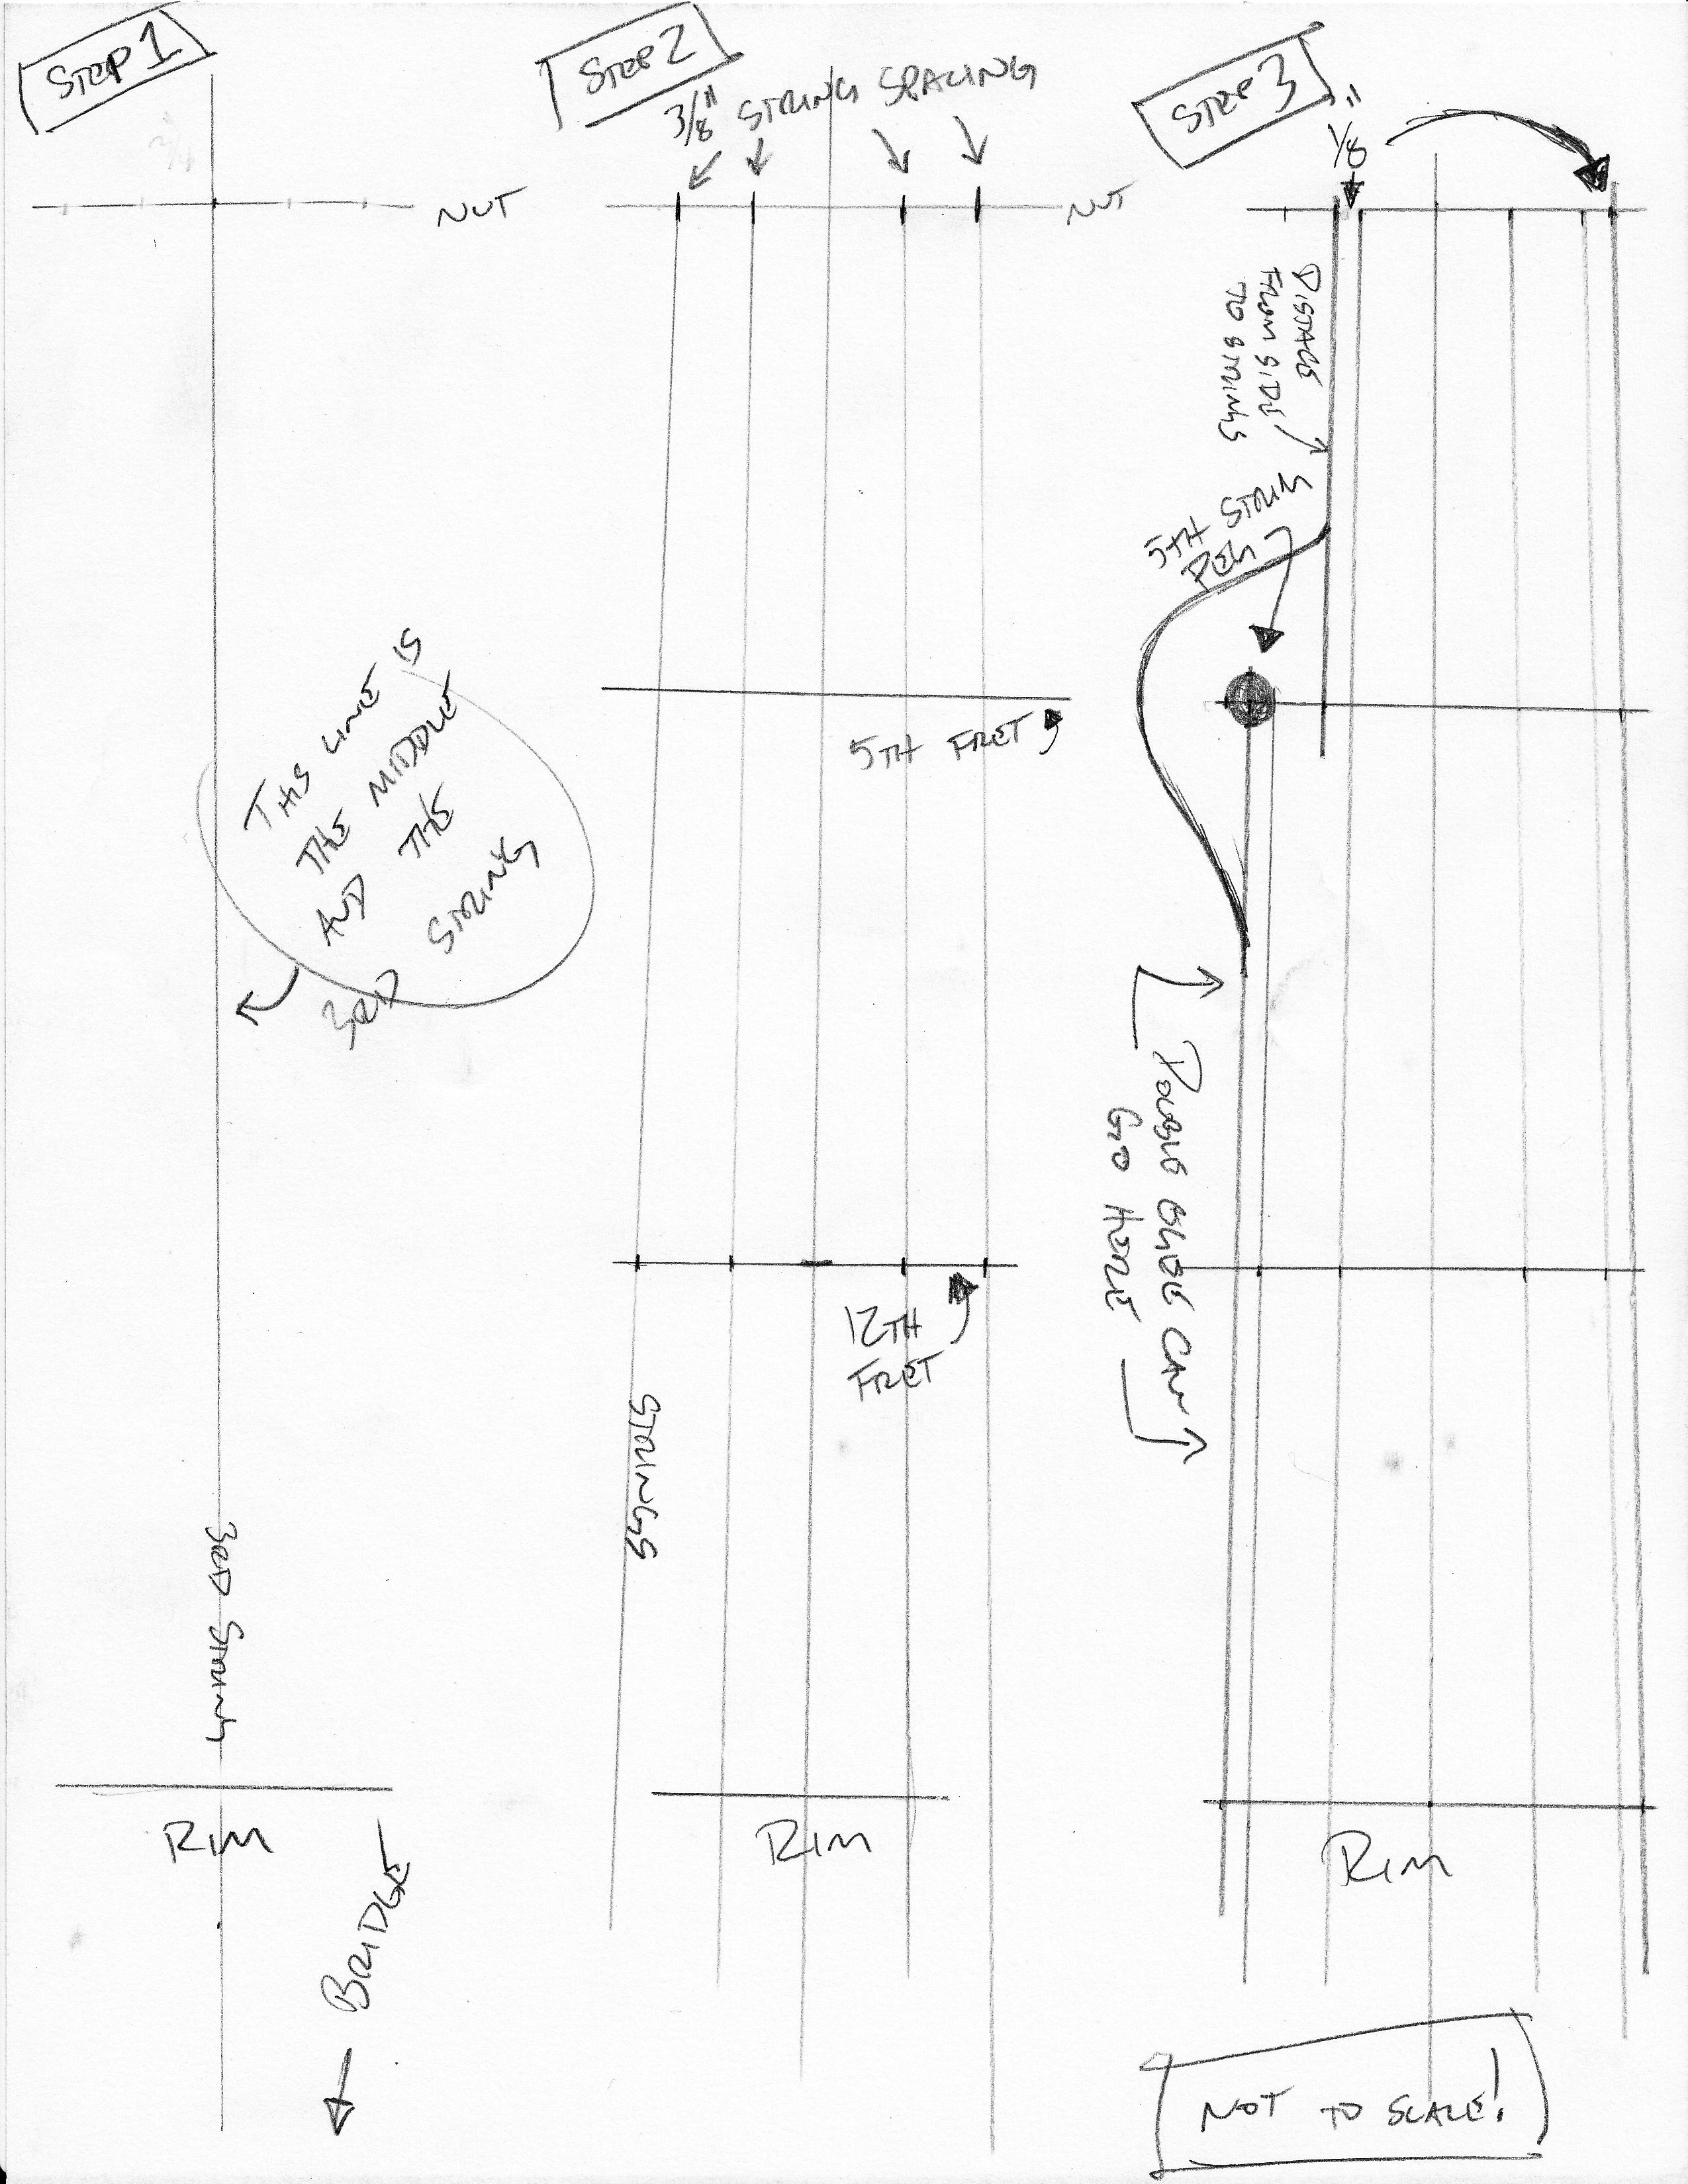 STEP 1
NUT
THIS LINE IS
THE MIDDLE
AND THE
3RD STRING
3RD STRING
RIM
BRIDGE
STEP 2
3/8" STRING SPACING
NUT
5TH FRET
12TH
FRET
STRINGS
RIM
STEP 3
1/8"
DISTACE
FROM SIDE
TO STRINGS
5TH STRING
PEG
DOUBLE OGEE CAN
GO HERE
RIM
NOT TO SCALE!